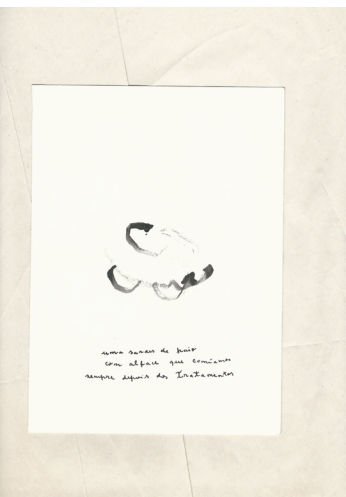 uma sandes de paio
com alface que comíamos
sempre depois dos tratamentos